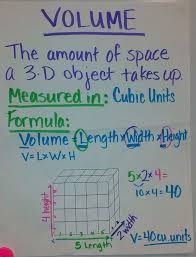 VOLUME
The amount of space
a 3-D object takes up.
Measured in: Cubic Units
Formula:
Volume = Length x Width x Height
V = L x W x H
5 x 2 x 4 =
10 x 4 = 40
4 height
5 length
2 width
V = 40 cu. units